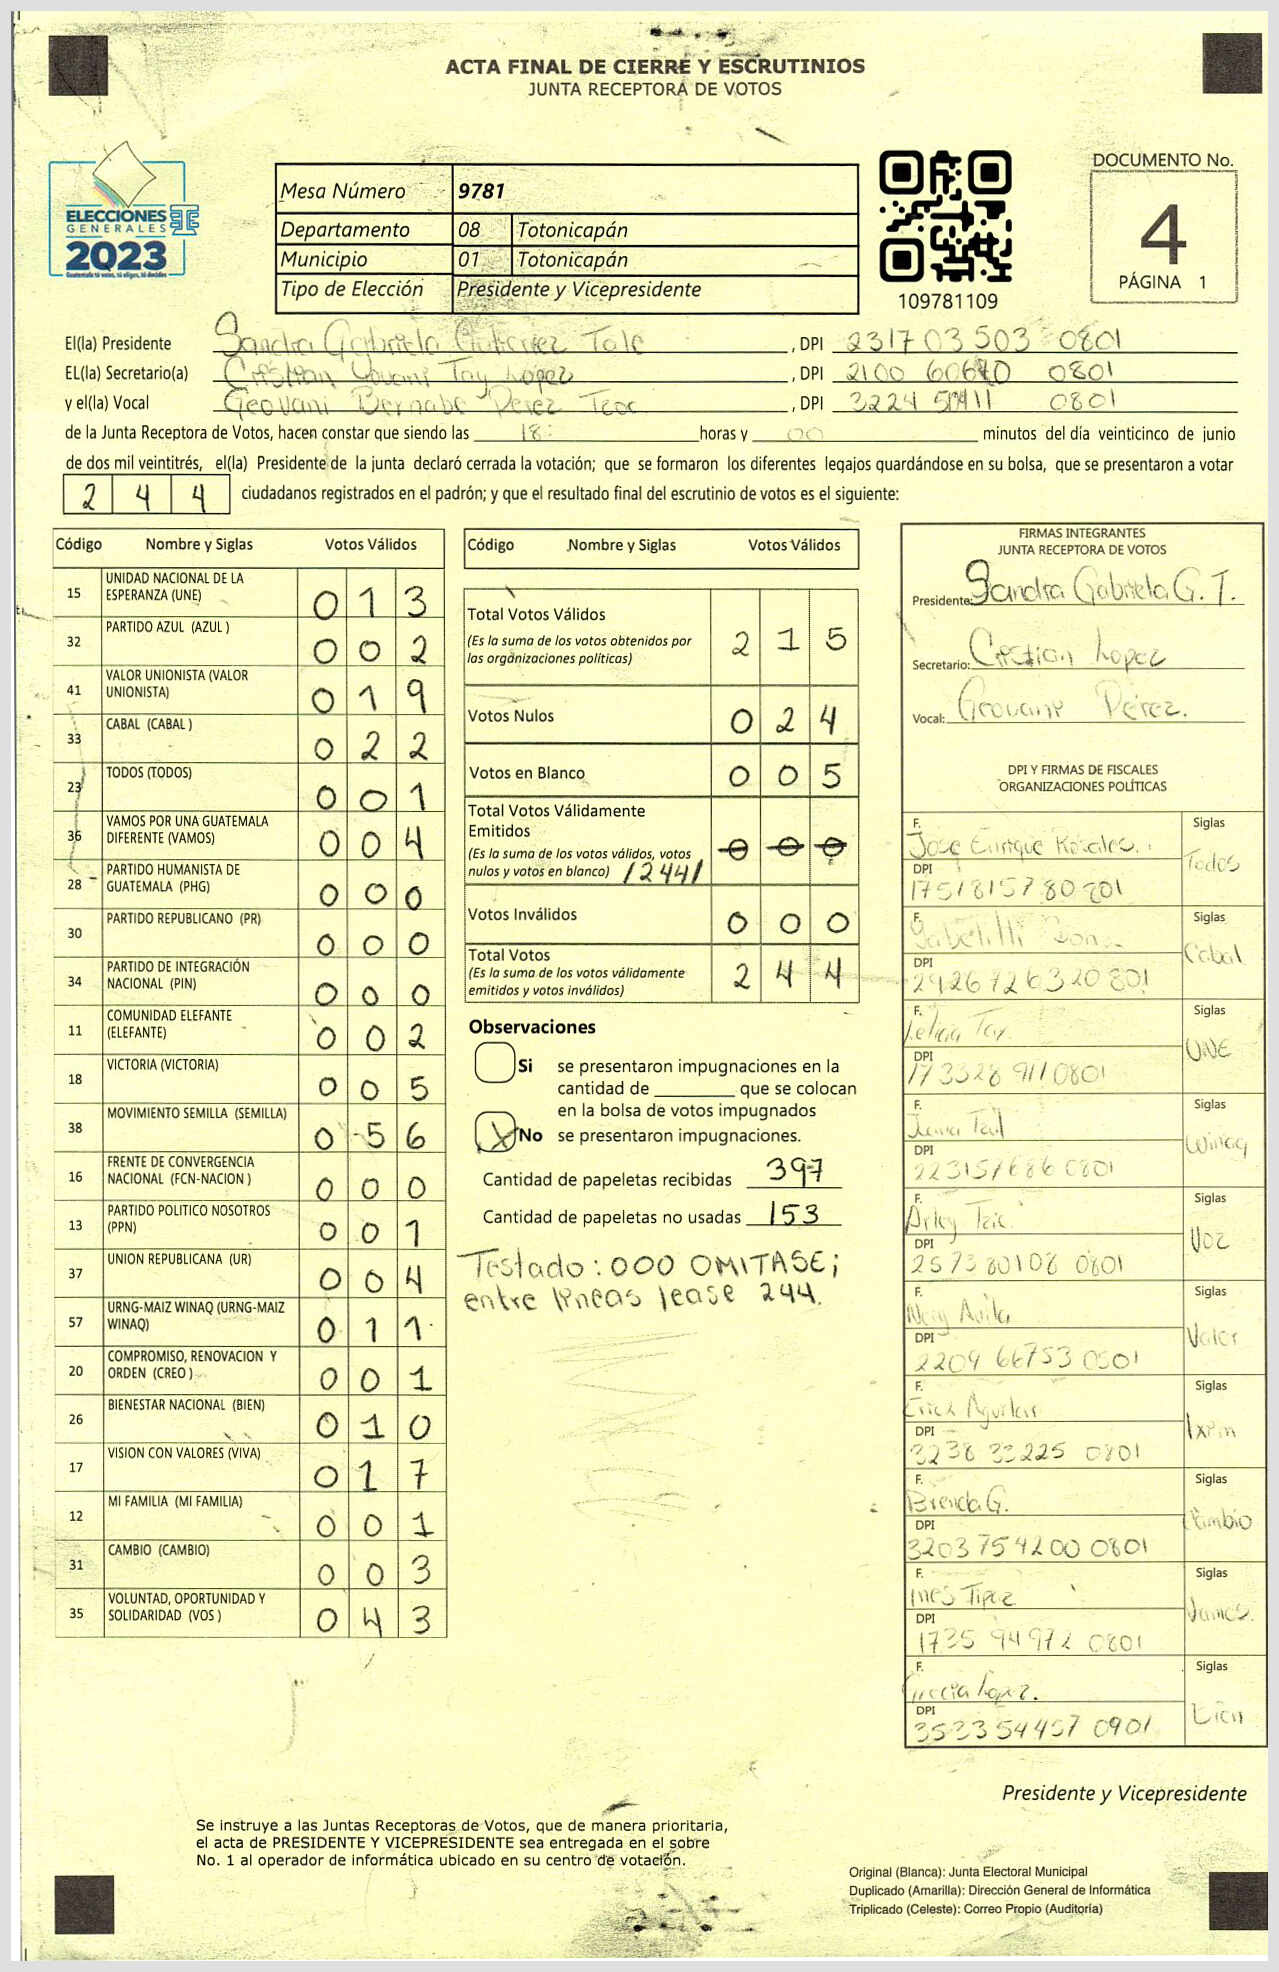 ACTA FINAL DE CIERRE Y ESCRUTINIOS
JUNTA RECEPTORA DE VOTOS
ELECCIONES
GENERALES
2023
Guatemala tú votas, tú eliges, tú decides
Mesa Número 9781
Departamento 08 Totonicapán
Municipio 01 Totonicapán
Tipo de Elección Presidente y Vicepresidente
109781109
DOCUMENTO No.
4
PÁGINA 1
El(la) Presidente Sandra Gabriela Gutierrez Tale , DPI 231703503 0801
EL(la) Secretario(a) Cristian Yovani Tay Lopez , DPI 2100 0801
y el(la) Vocal Geovani Bernabe Perez Tzoc , DPI 3224 0801
de la Junta Receptora de Votos, hacen constar que siendo las 18: horas y 00 minutos del día veinticinco de junio
de dos mil veintitrés, el(la) Presidente de la junta declaró cerrada la votación; que se formaron los diferentes legajos quardándose en su bolsa, que se presentaron a votar
244 ciudadanos registrados en el padrón; y que el resultado final del escrutinio de votos es el siguiente:
Código Nombre y Siglas Votos Válidos
15 UNIDAD NACIONAL DE LA ESPERANZA (UNE) 013
32 PARTIDO AZUL (AZUL ) 002
41 VALOR UNIONISTA (VALOR UNIONISTA) 019
33 CABAL (CABAL ) 022
23 TODOS (TODOS) 001
36 VAMOS POR UNA GUATEMALA DIFERENTE (VAMOS) 004
28 PARTIDO HUMANISTA DE GUATEMALA (PHG) 000
30 PARTIDO REPUBLICANO (PR) 000
34 PARTIDO DE INTEGRACIÓN NACIONAL (PIN) 000
11 COMUNIDAD ELEFANTE (ELEFANTE) 002
18 VICTORIA (VICTORIA) 005
38 MOVIMIENTO SEMILLA (SEMILLA) 056
16 FRENTE DE CONVERGENCIA NACIONAL (FCN-NACION ) 000
13 PARTIDO POLITICO NOSOTROS (PPN) 001
37 UNION REPUBLICANA (UR) 004
57 URNG-MAIZ WINAQ (URNG-MAIZ WINAQ) 011
20 COMPROMISO, RENOVACION Y ORDEN (CREO ) 001
26 BIENESTAR NACIONAL (BIEN) 010
17 VISION CON VALORES (VIVA) 017
12 MI FAMILIA (MI FAMILIA) 001
31 CAMBIO (CAMBIO) 003
35 VOLUNTAD, OPORTUNIDAD Y SOLIDARIDAD (VOS ) 043
Código Nombre y Siglas Votos Válidos
Total Votos Válidos 215
(Es la suma de los votos obtenidos por
las organizaciones políticas)
Votos Nulos 024
Votos en Blanco 005
Total Votos Válidamente
Emitidos 000
(Es la suma de los votos válidos, votos
nulos y votos en blanco) /244/
Votos Inválidos 000
Total Votos 244
(Es la suma de los votos válidamente
emitidos y votos inválidos)
Observaciones
Si se presentaron impugnaciones en la
cantidad de ________ que se colocan
en la bolsa de votos impugnados
X No se presentaron impugnaciones.
Cantidad de papeletas recibidas 397
Cantidad de papeletas no usadas 153
Testado: 000 OMITASE;
entre lineas lease 244.
FIRMAS INTEGRANTES
JUNTA RECEPTORA DE VOTOS
Presidente: Sandra Gabriela G. T.
Secretario: Cristian Lopez
Vocal: Geovani Pérez.
DPI Y FIRMAS DE FISCALES
ORGANIZACIONES POLÍTICAS
F. Siglas
Jose Enrique Rosales. Todos
DPI
F. Siglas
Cabal
DPI 2426726320801
F. Siglas
Leticia Tay. UNE
DPI 173328 9110801
F. Siglas
Winaq
DPI 223157686 0801
F. Siglas
Voz
DPI 257380108 0801
F. Siglas
Nery Avila Valor
DPI 2209 66753 0801
F. Siglas
Erick Aguilar
DPI 3238 33225 0801
F. Siglas
Brenda G. Cambio
DPI 3203754200 0801
F. Siglas
Ines Tipaz Vamos.
DPI 1735 94972 0801
F. Siglas
Lopez. Bien
DPI 353354457 0901
Presidente y Vicepresidente
Se instruye a las Juntas Receptoras de Votos, que de manera prioritaria,
el acta de PRESIDENTE Y VICEPRESIDENTE sea entregada en el sobre
No. 1 al operador de informática ubicado en su centro de votación.
Original (Blanca): Junta Electoral Municipal
Duplicado (Amarilla): Dirección General de Informática
Triplicado (Celeste): Correo Propio (Auditoría)